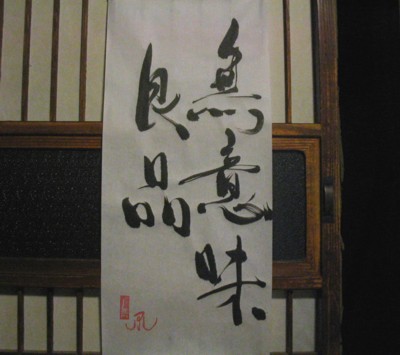 無意味
良品